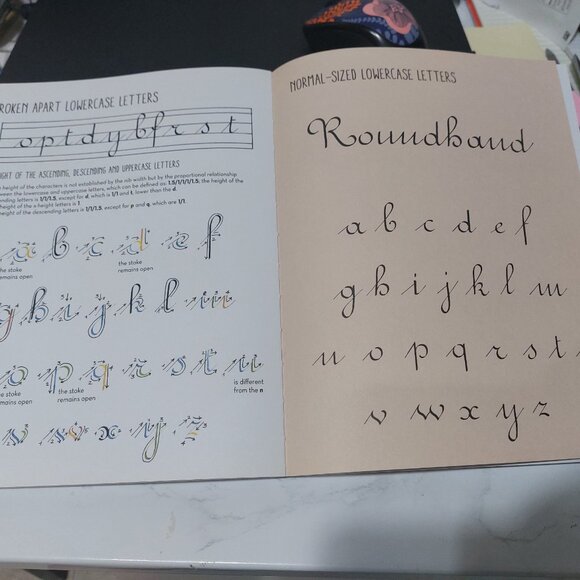 ROKEN APART LOWERCASE LETTERS
o p t d y b f r s t
GHT OF THE ASCENDING, DESCENDING AND UPPERCASE LETTERS
height of the characters is not established by the nib width but by the proportional relationship
ween the lowercase and uppercase letters, which can be defined as: 1.5/1/1/1/1.5; the height of the
ending letters is 1/1/1.5, except for d, which is 1/1 and t, lower than the d.
height of the x-height letters is 1.
height of the descending letters is 1/1/1.5, except for p and q, which are 1/1.
a b c d e f
the stoke
remains open
the stoke
remains open
g h i j k l m
o p q r s t u
the stoke
remains open
is different
from the n
v w x y z
NORMAL-SIZED LOWERCASE LETTERS
Roundhand
a b c d e f
g h i j k l m
n o p q r s t
v w x y z